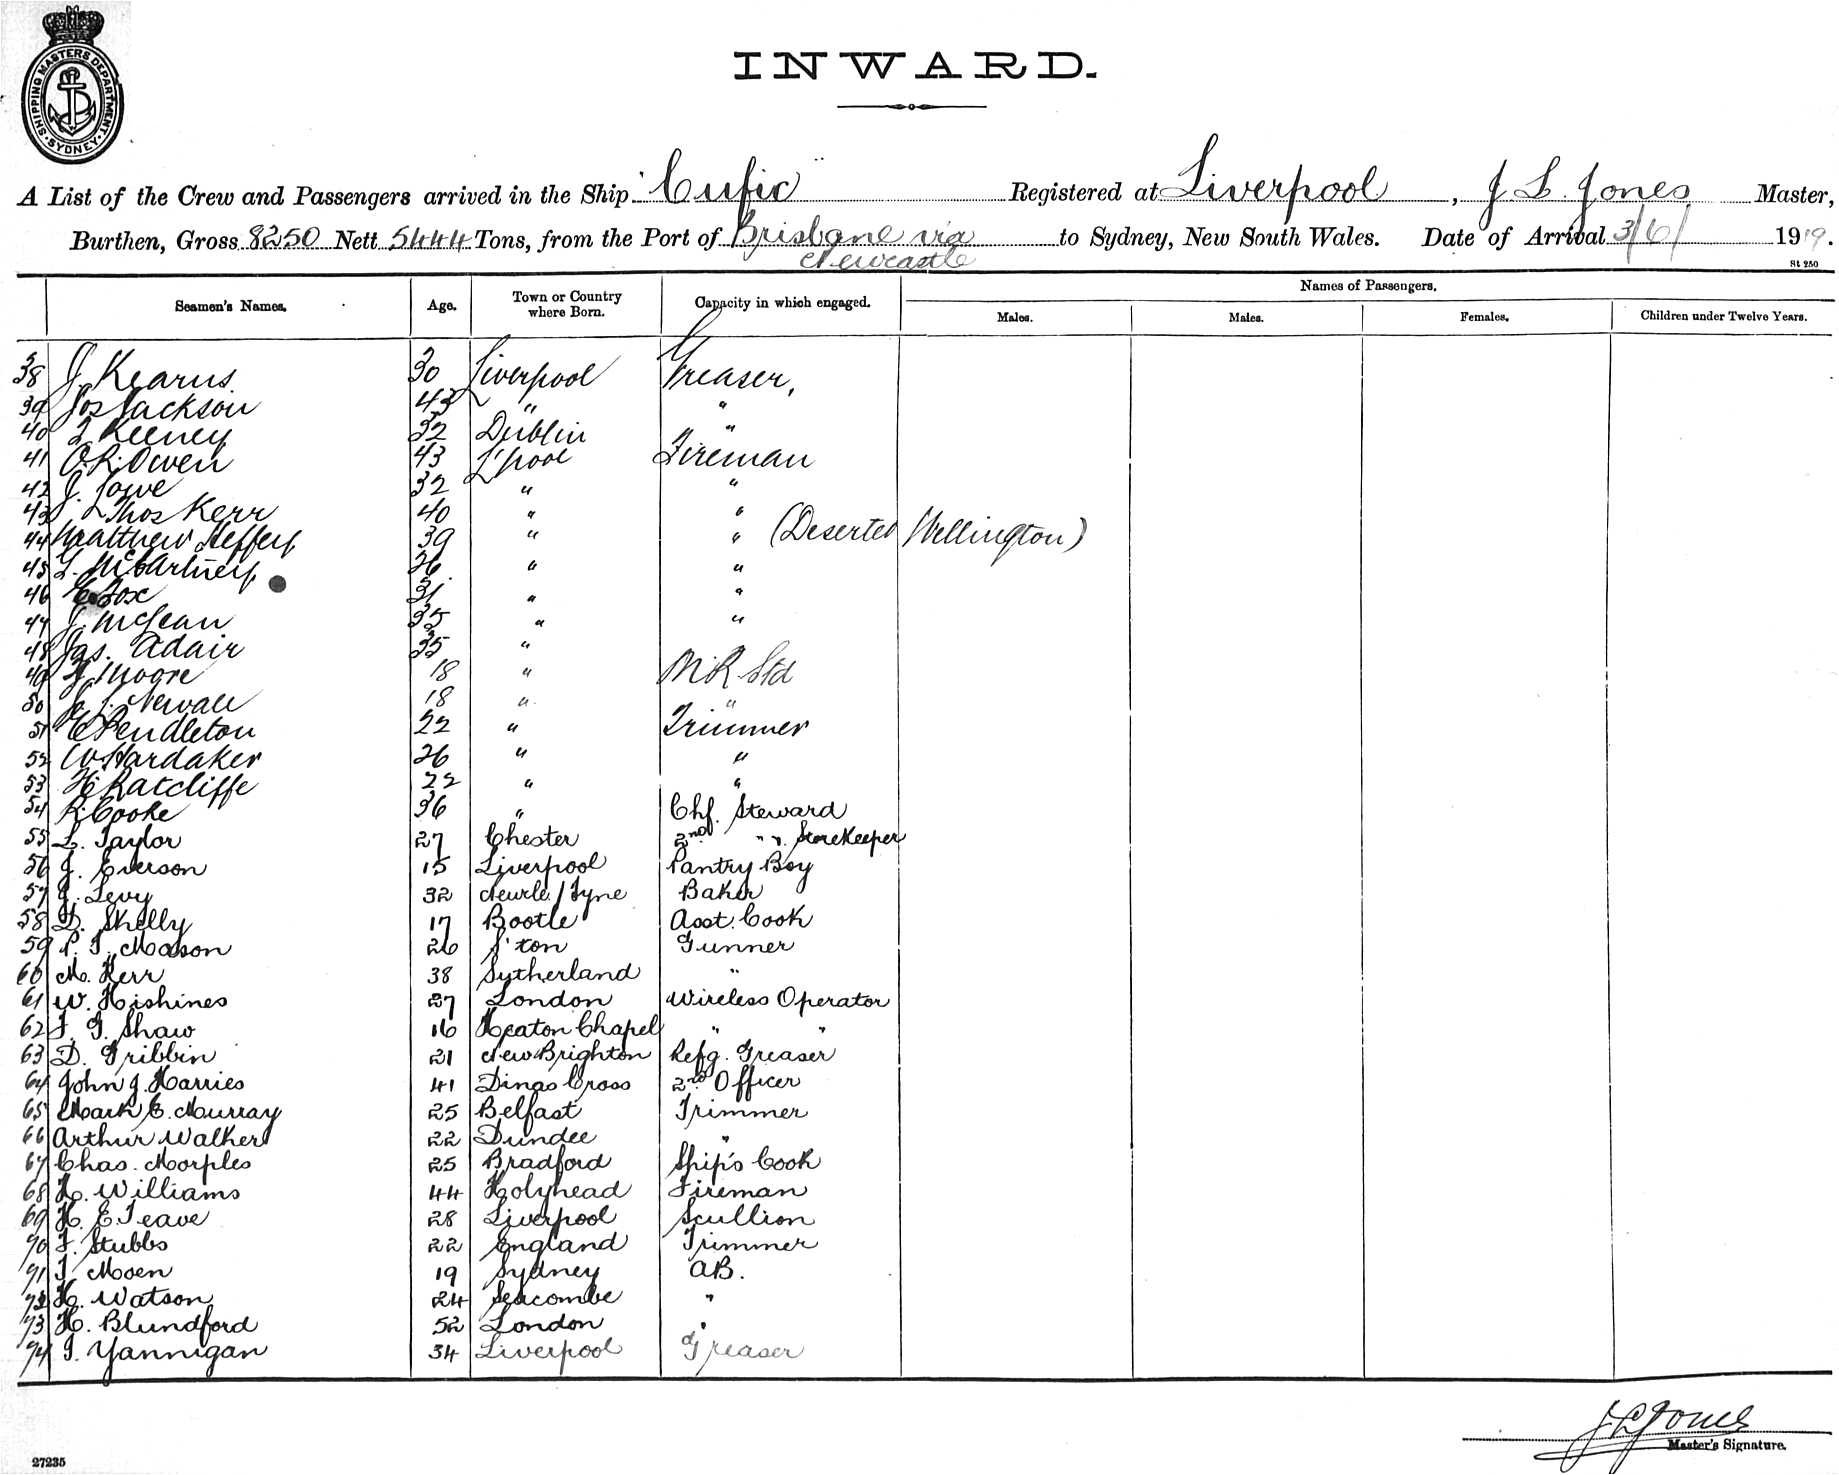 SHIPPING MASTERS DEPARTMENT. SYDNEY
INWARD.
A List of the Crew and Passengers arrived in the Ship Cufic Registered at Liverpool, J L Jones Master,
Burthen, Gross 8250 Nett 5444 Tons, from the Port of Brisbane via to Sydney, New South Wales. Date of Arrival 3/6/ 1919.
Newcastle
St 250
Seamen's Names. Age. Town or Country where Born. Capacity in which engaged. Names of Passengers.
Males. Males. Females. Children under Twelve Years.
38 J. Kearns 30 Liverpool Greaser,
39 Jos Jackson 43 " "
40 Keeney 32 Dublin "
41 O.R. Owen 43 L'pool Fireman
42 J. Lowe 32 " "
43 Thos Kerr 40 " "
44 Matthew Heffery 39 " " (Deserted Wellington)
45 L. McCartney 26 " "
46 E Fox 31 " "
47 J. McLean 35 " "
48 Jas. Adair 35 "
49 Moore 18 " M.R. Std
50 Newall 18 " "
51 E Pendleton 22 " Trimmer
52 W Hardaker 26 " "
53 H. Ratcliffe 22 " "
54 R. Cooke 36 " Chf. Steward
55 L. Taylor 27 Chester 2nd " ". Storekeeper
56 J. Everson 15 Liverpool Pantry Boy
57 J. Levy 32 Newcle/Tyne Baker
58 D. Skelly 17 Bootle Asst. Cook
59 P. T. Mason 26 S'ton Gunner
60 M. Kerr 38 Sutherland "
61 W. Hishines 27 London Wireless Operator
62 F. G. Shaw 16 Heaton Chapel " "
63 D. Gribbin 21 New Brighton Refg. Greaser
64 John J. Harries 41 Dinas Cross 2nd Officer
65 Mark E. Murray 25 Belfast Trimmer
66 Arthur Walker 22 Dundee "
67 Chas. Morples 25 Bradford Ship's Cook
68 H. Williams 44 Holyhead Fireman
69 H. E. Teave 28 Liverpool Scullion
70 F. Stubbs 22 England Trimmer
71 T. Moen 19 Sydney AB.
72 H. Watson 24 Seacombe "
73 H. Blundford 52 London "
74 T. Yannigan 34 Liverpool Greaser
J L Jones
Master's Signature.
27235